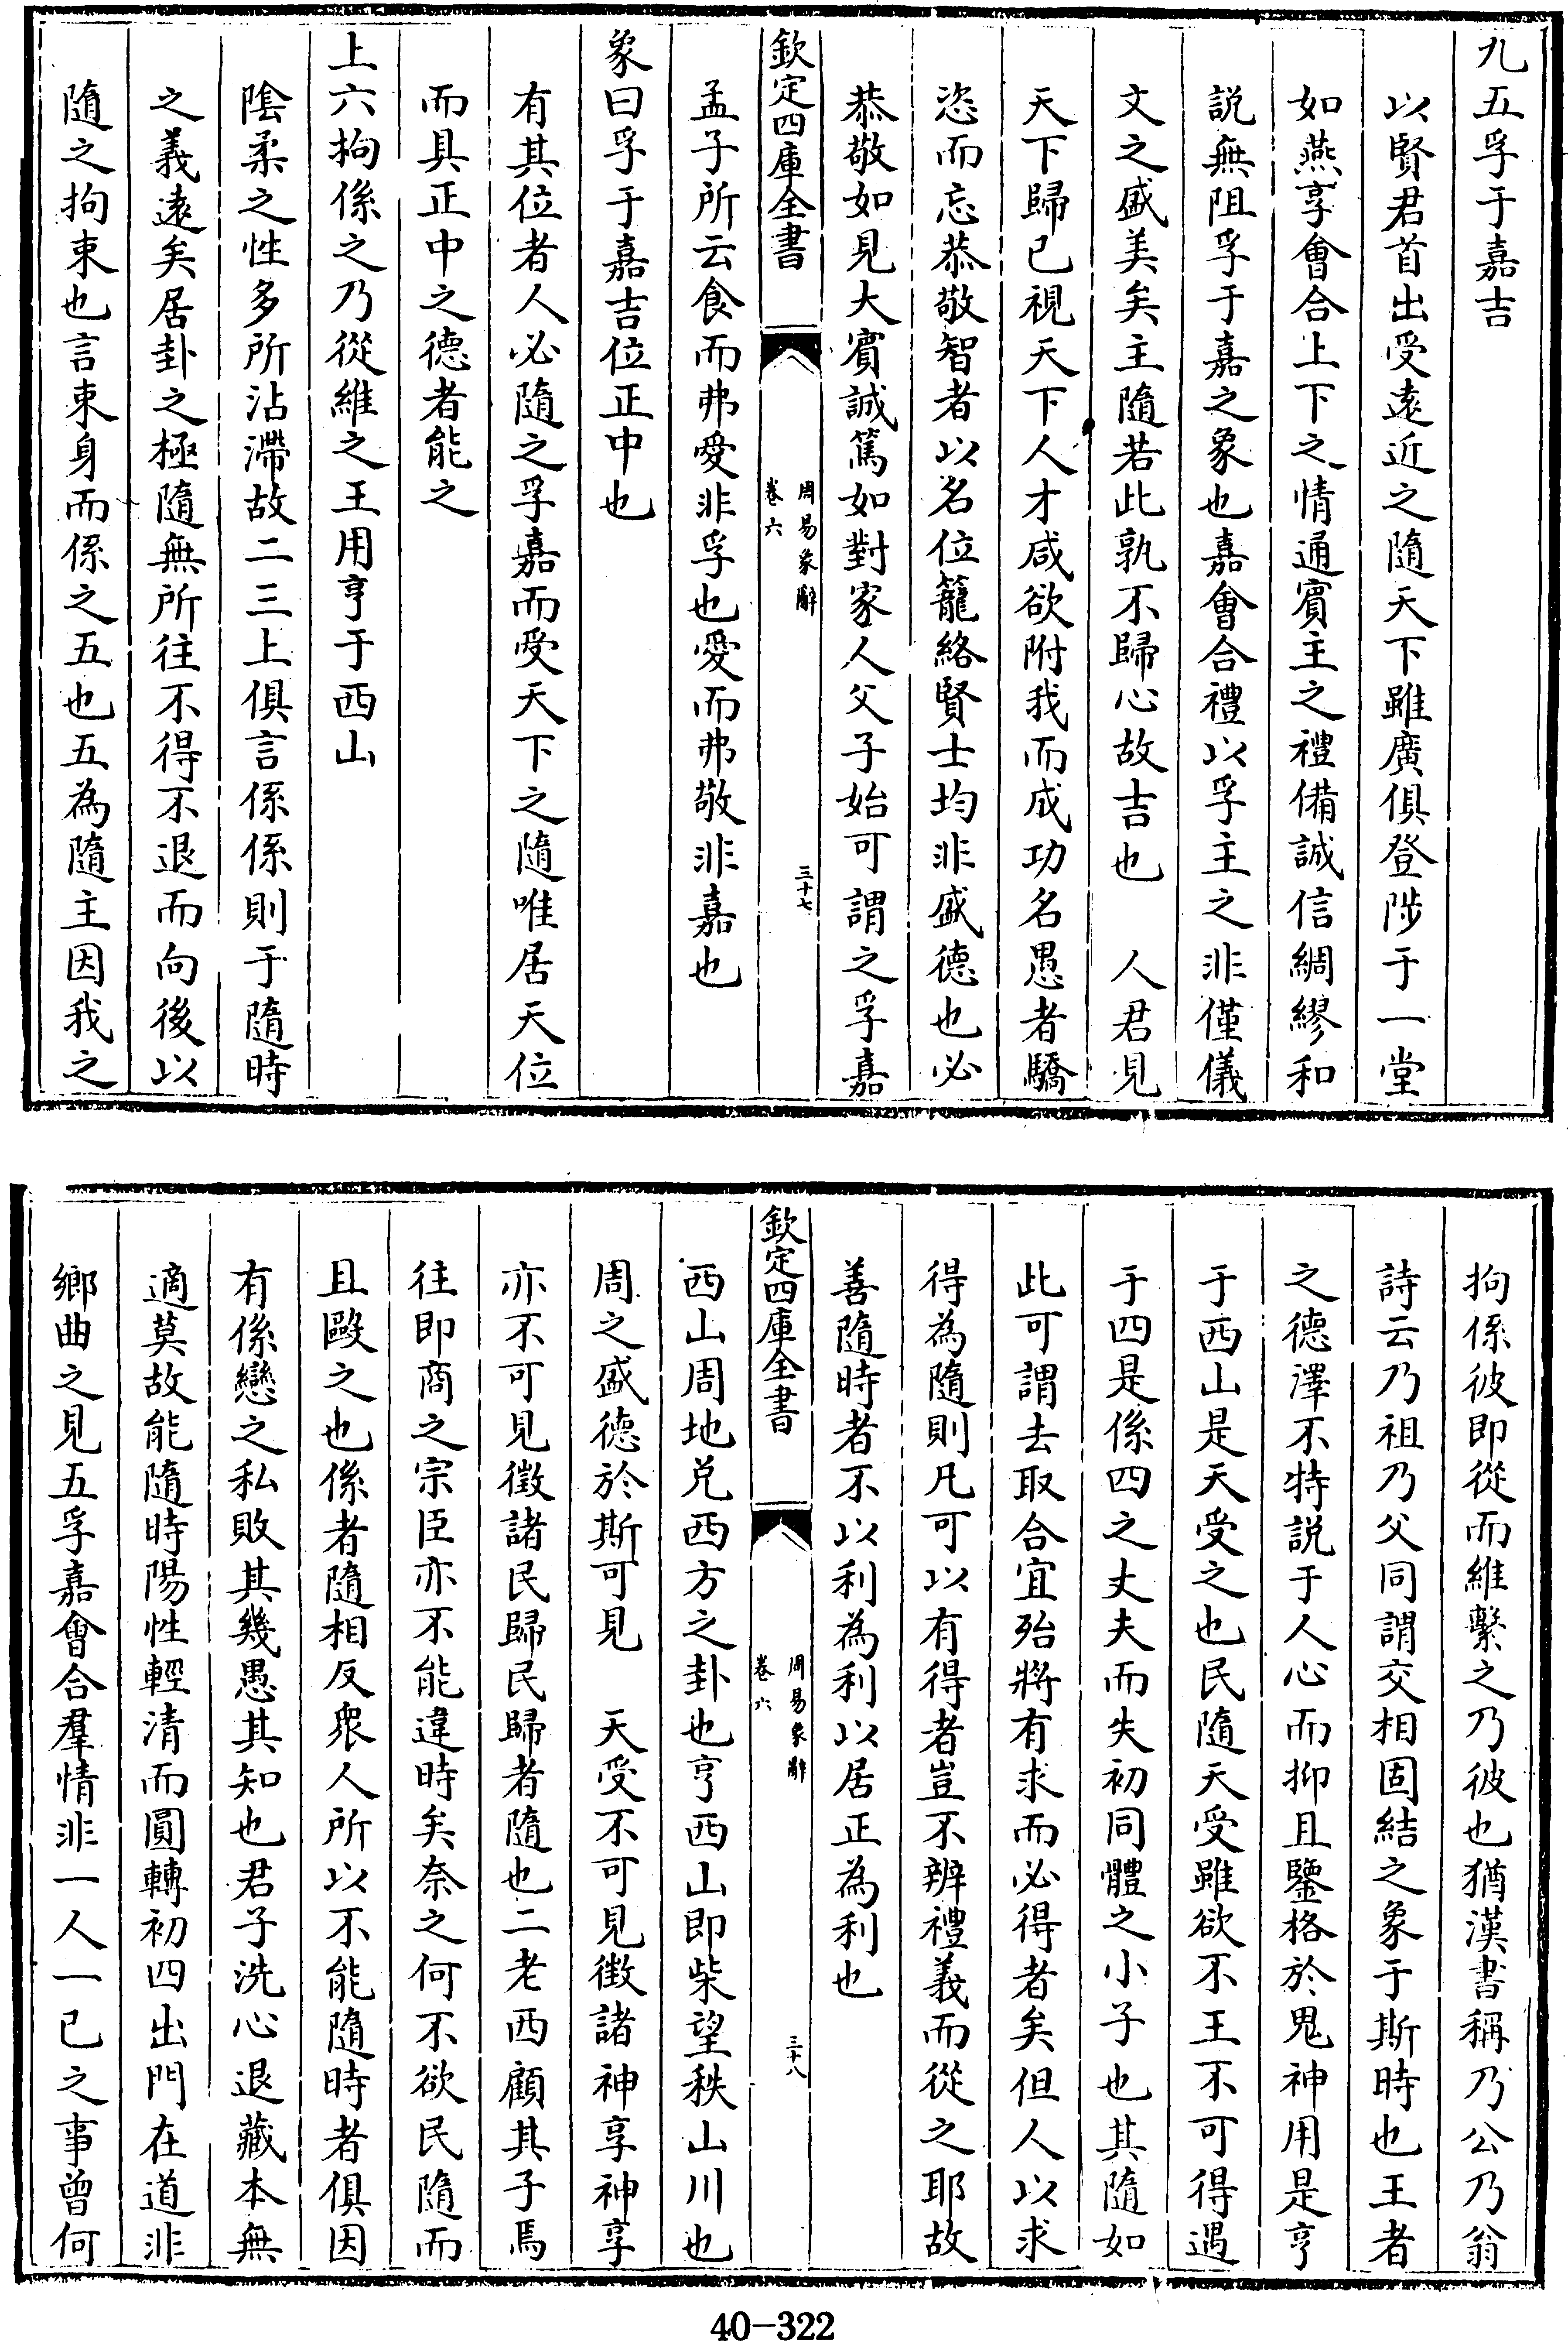 九五孚于嘉吉
以賢君首出受遠近之隨天下雖廣俱登陟于一堂
如燕享會合上下之情通賓主之禮備誠信綢繆和
說無阻孚于嘉之象也嘉會合禮以孚主之非僅儀
文之盛美矣主隨若此孰不歸心故吉也　人君見
天下歸已視天下人才咸欲附我而成功名愚者驕
恣而忘恭敬智者以名位籠絡賢士均非盛德也必
恭敬如見大賓誠篤如對家人父子始可謂之孚嘉
欽定四庫全書
周易象辭
卷六
三十七
孟子所云食而弗愛非孚也愛而弗敬非嘉也
象曰孚于嘉吉位正中也
有其位者人必隨之孚嘉而受天下之隨唯居天位
而具正中之德者能之
上六拘係之乃從維之王用亨于西山
陰柔之性多所沾滯故二三上俱言係係則于隨時
之義遠矣居卦之極隨無所往不得不退而向後以
隨之拘束也言束身而係之五也五為隨主因我之
拘係彼即從而維繫之乃彼也猶漢書稱乃公乃翁
詩云乃祖乃父同謂交相固結之象于斯時也王者
之德澤不特説于人心而抑且鑒格於鬼神用是亨
于西山是天受之也民隨天受雖欲不王不可得遇
于四是係四之丈夫而失初同體之小子也其隨如
此可謂去取合宜殆將有求而必得者矣但人以求
得為隨則凡可以有得者豈不辨禮義而從之耶故
善隨時者不以利為利以居正為利也
欽定四庫全書
周易象辭
卷六
三十八
西山周地兑西方之卦也亨西山即柴望秩山川也
周之盛德於斯可見　天受不可見徴諸神享神享
亦不可見徴諸民歸民歸者隨也二老西顧其子焉
往即商之宗臣亦不能違時矣奈之何不欲民隨而
且毆之也係者隨相反衆人所以不能隨時者俱因
有係戀之私敗其幾愚其知也君子洗心退藏本無
適莫故能隨時陽性輕清而圓轉初四出門在道非
鄉曲之見五孚嘉會合羣情非一人一已之事曾何
40-322